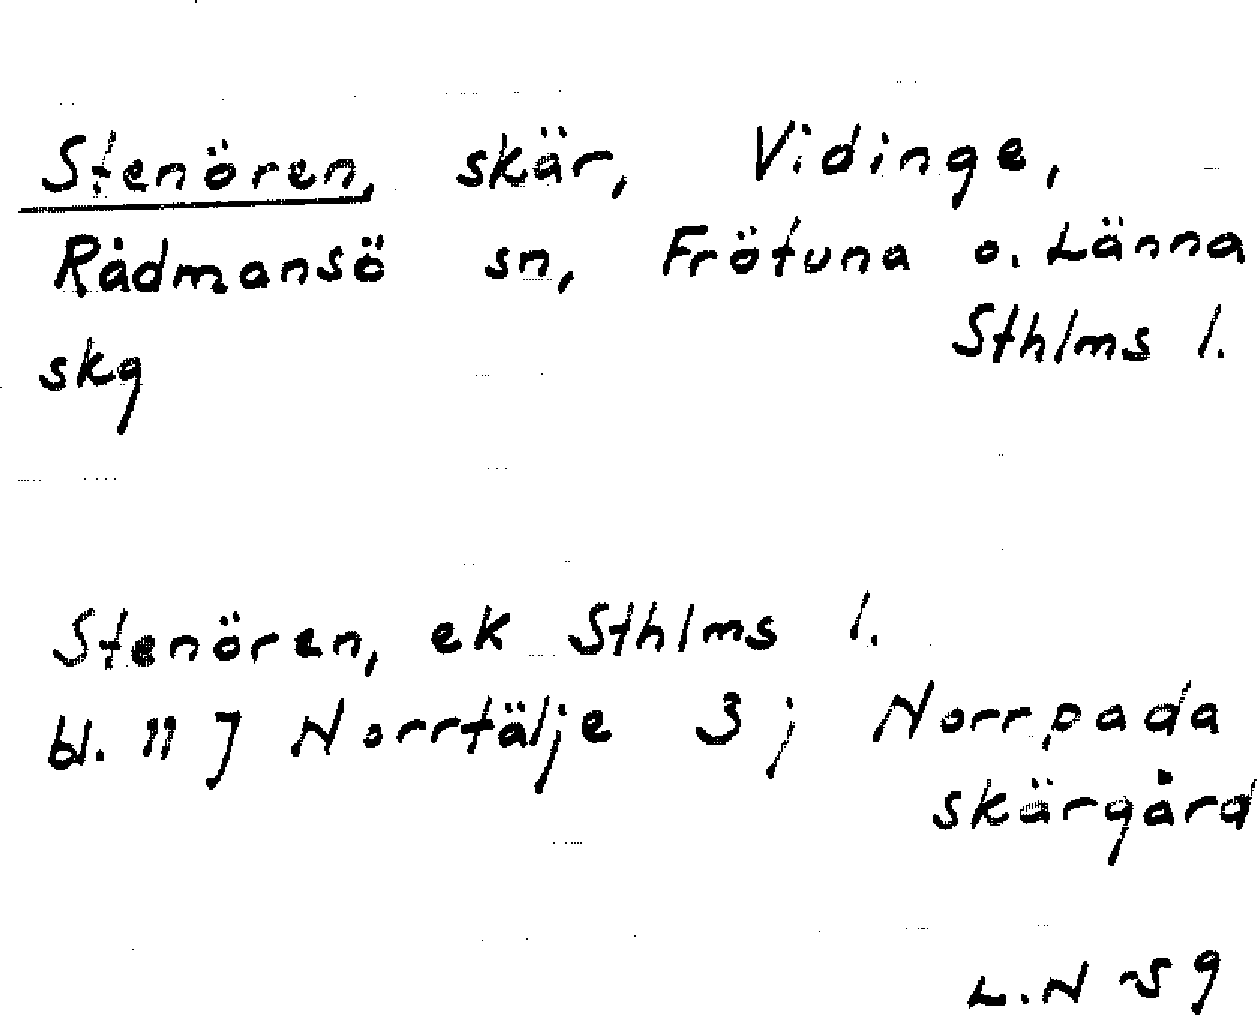 Stenören, skär, Vidinge,
Rådmansö sn, Frötuna o. Länna
skg Sthlms l.
Stenören, ek Sthlms l.
bl. 11 J Norrtälje 3 j Norrpada
skärgård
L.N -59